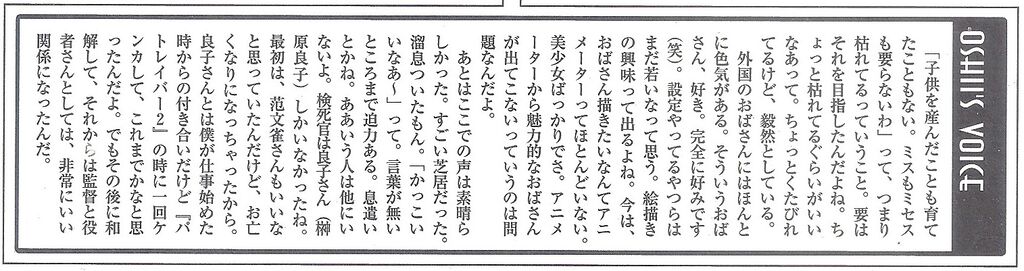 OSHII'S VOICE
「子供を産んだことも育て
たこともない。ミスもミセス
も要らないわ」って、つまり
枯れてるっていうこと。要は
それを目指したんだよね。ち
ょっと枯れてるぐらいがいい
なあって。ちょっとくたびれ
てるけど、毅然としている。
　外国のおばさんにはほんと
に色気がある。そういうおば
さん、好き。完全に好みです
（笑）。設定やってるやつらは
まだ若いなって思う。絵描き
の興味って出るよね。今は、
おばさん描きたいなんてアニ
メーターってほとんどいない。
美少女ばっかりでさ。アニメ
ーターから魅力的なおばさん
が出てこないっていうのは問
題なんだよ。
　あとはここでの声は素晴ら
しかった。すごい芝居だった。
溜息ついたもん。「かっこい
いなあ〜」って。言葉が無い
ところまで迫力ある。息遣い
とかね。ああいう人は他にい
ないよ。検死官は良子さん（榊
原良子）しかいなかったね。
最初は、范文雀さんもいいな
と思っていたんだけど、お亡
くなりになっちゃったから。
良子さんとは僕が仕事始めた
時からの付き合いだけど『パ
トレイバー2』の時に一回ケ
ンカして、これまでかなと思
ったんだよ。でもその後に和
解して、それからは監督と役
者さんとしては、非常にいい
関係になったんだ。